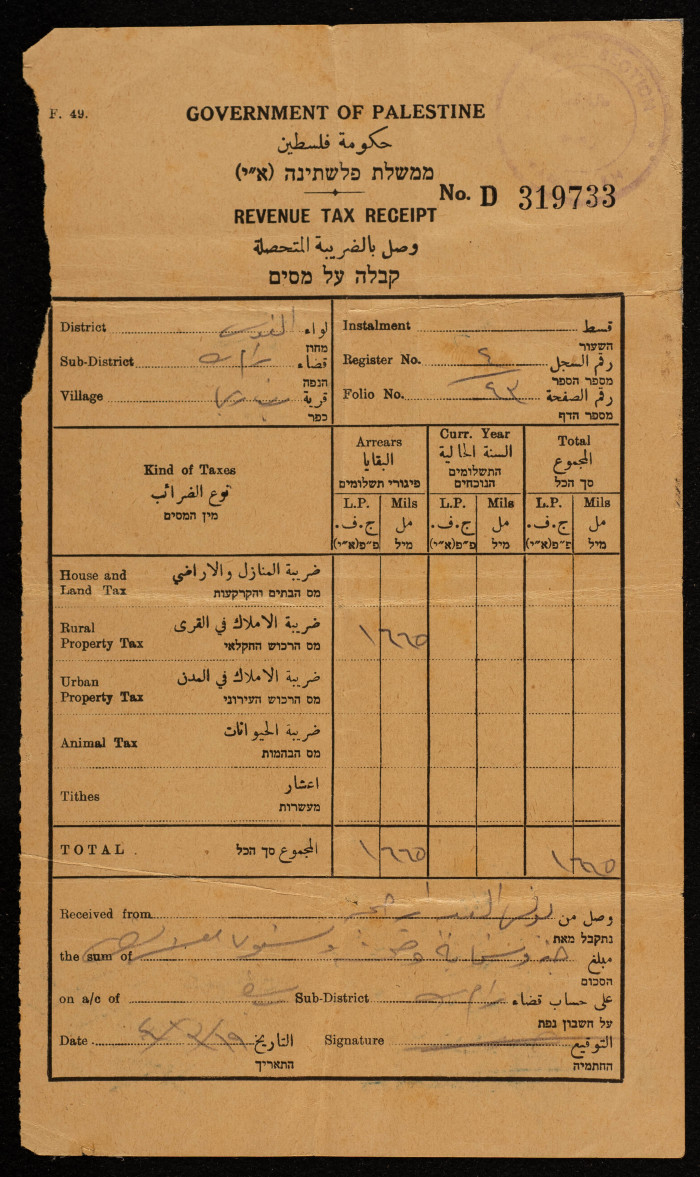 F. 49.
GOVERNMENT OF PALESTINE
حكومة فلسطين
ממשלת פלשתינה (א״י)
No. D 319733
REVENUE TAX RECEIPT
وصل بالضريبة المتحصلة
קבלה על מסים
District القدس لواء
מחוז
Sub-District رام الله قضاء
הנפה
Village قرية
כפר
Instalment قسط
השעור
Register No. ٤ رقم السجل
מספר הספר
Folio No. ٤٣ رقم الصفحة
מספר הדף
Kind of Taxes
نوع الضرائب
מין המסים
Arrears
البقايا
פיגורי תשלומים
Curr. Year
السنة الحالية
התשלומים
הנוכחים
Total
المجموع
סך הכל
L.P. Mils L.P. Mils L.P. Mils
ج.ف. مل ج.ف. مل ج.ف. مل
פ״פ(א״י) מיל פ״פ(א״י) מיל פ״פ(א״י) מיל
House and Land Tax ضريبة المنازل والاراضي
מס הבתים והקרקעות
Rural Property Tax ضريبة الاملاك في القرى ١ ٦٦٥
מס הרכוש החקלאי
Urban Property Tax ضريبة الاملاك في المدن
מס הרכוש העירוני
Animal Tax ضريبة الحيوانات
מס הבהמות
Tithes اعشار
מעשרות
TOTAL المجموع סך הכל ١ ٦٦٥ ١ ٦٦٥
Received from وصل من
נתקבל מאת
the sum of مبلغ
הסכום
on a/c of Sub-District رام الله على حساب قضاء
על חשבון נפת
Date التاريخ Signature التوقيع
התאריך החתמיה